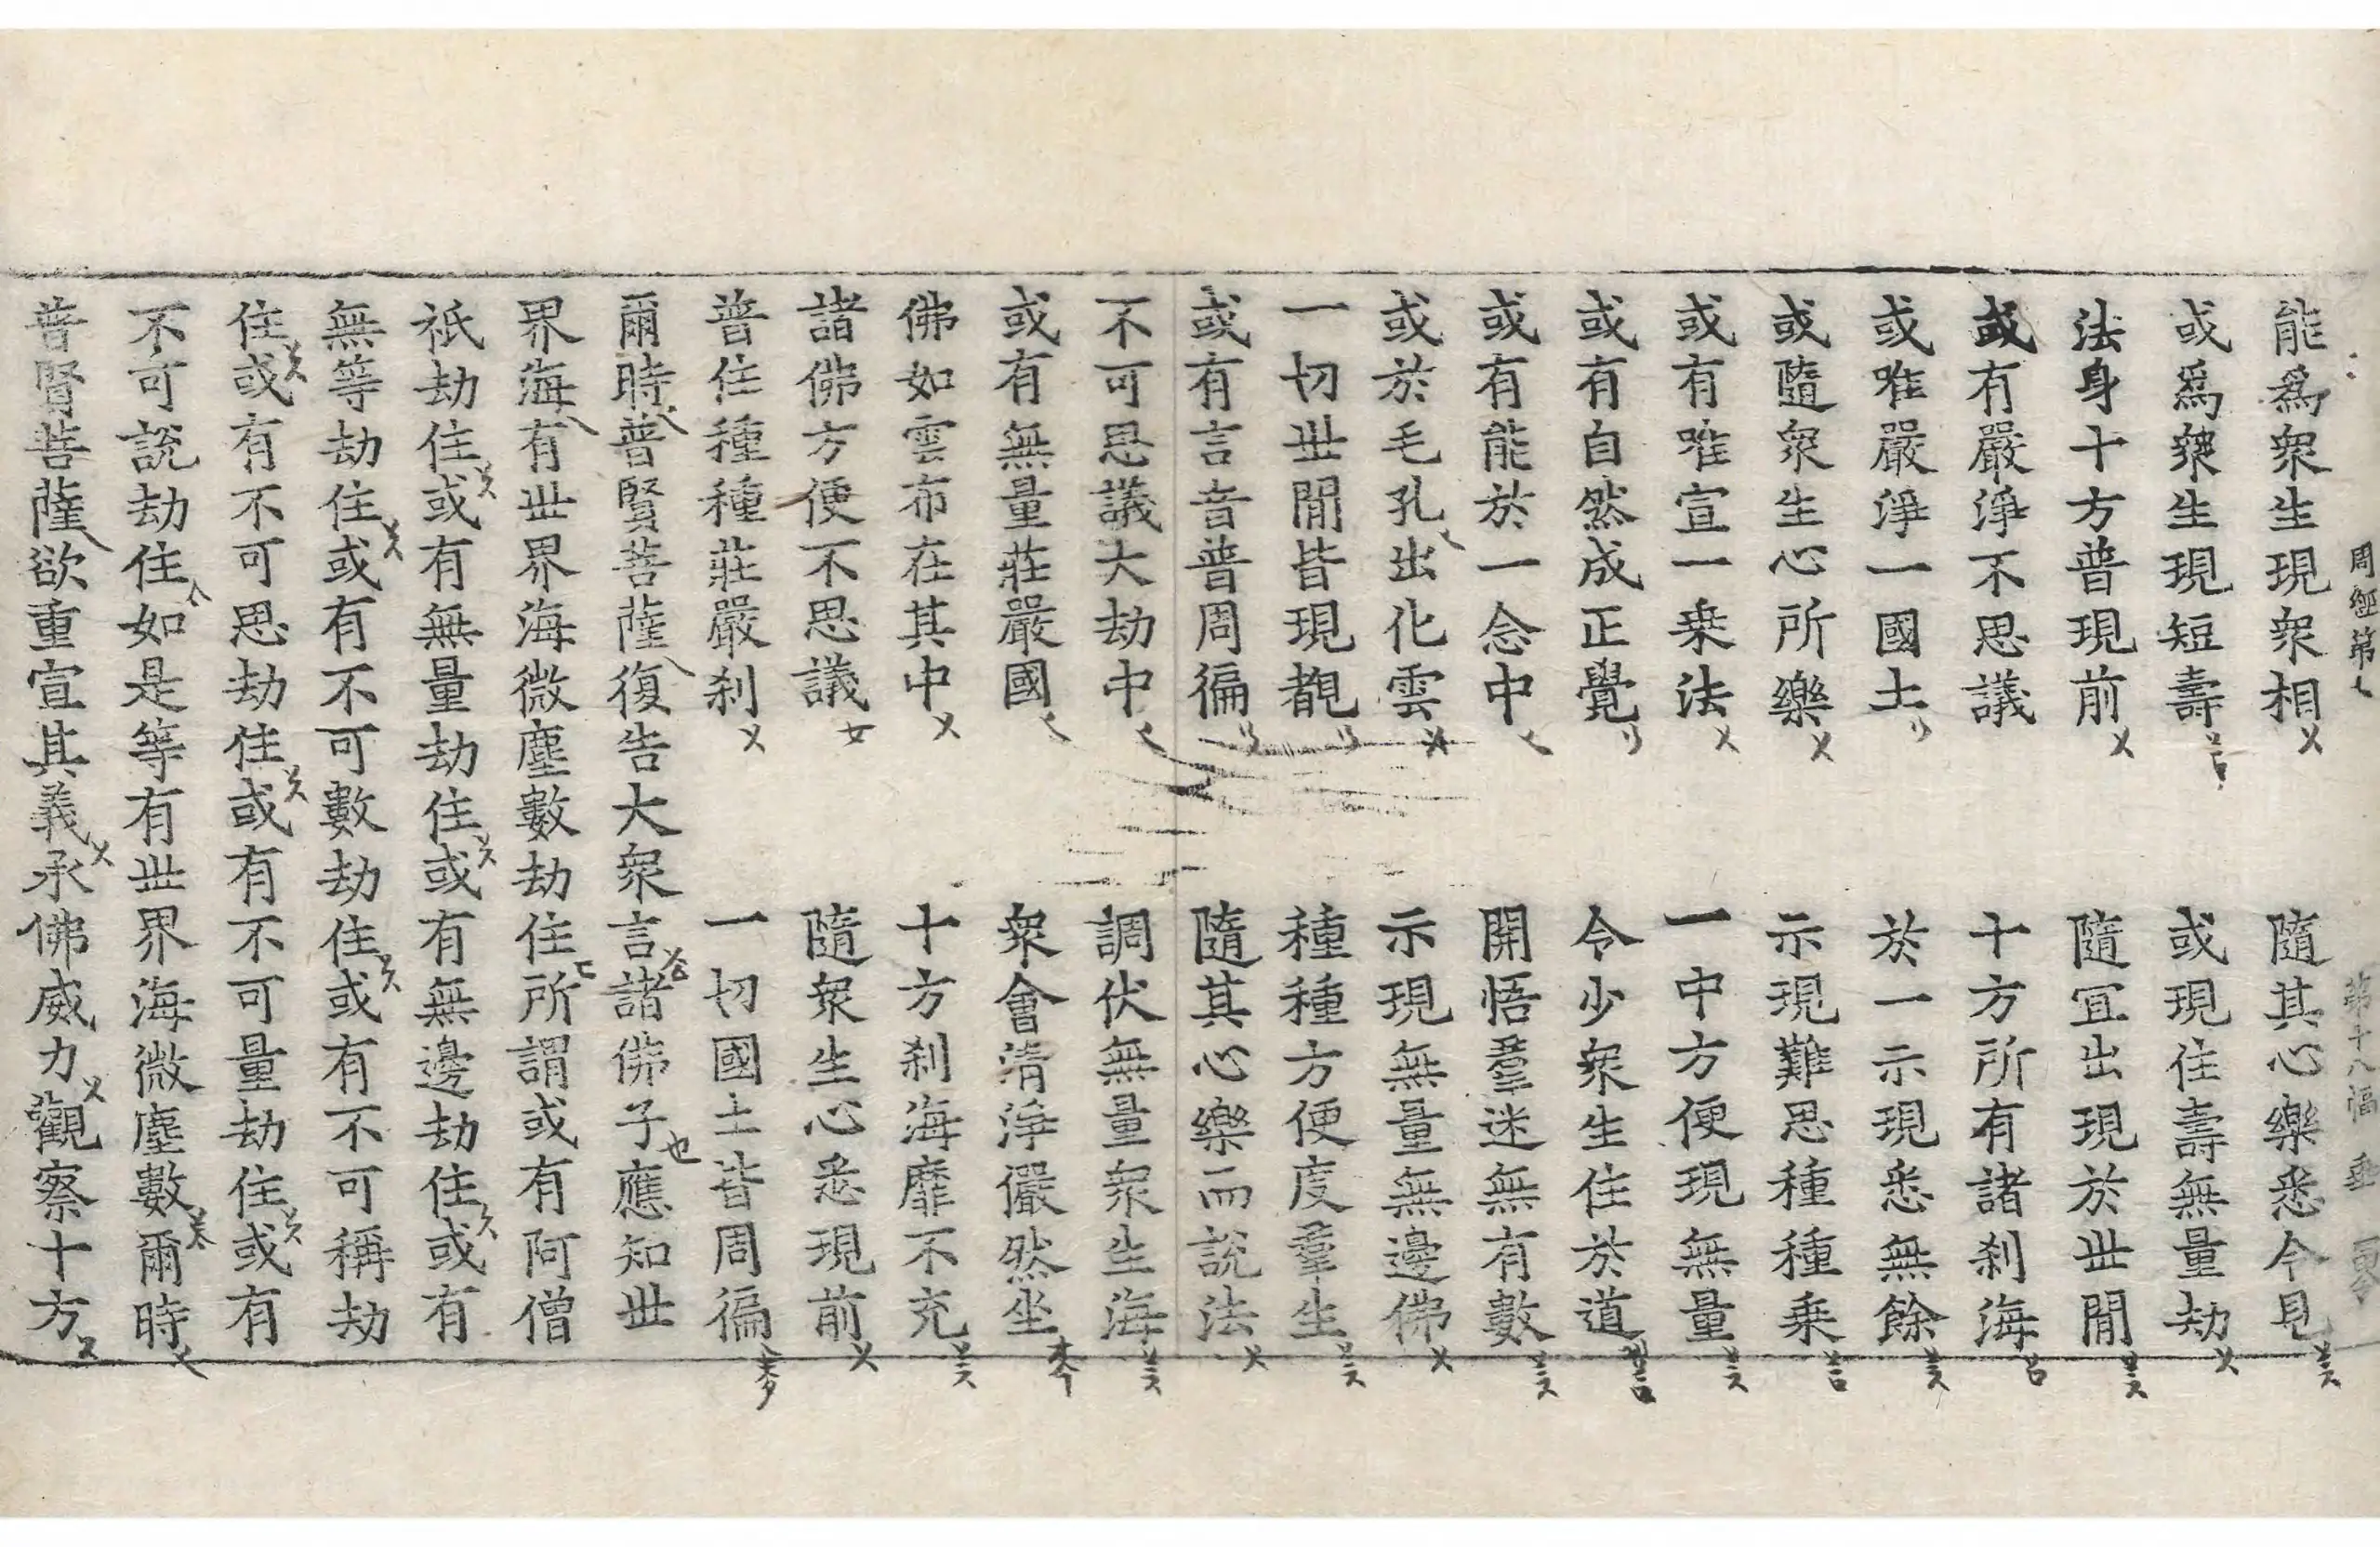 周經第七 第十八幅 垂
能爲衆生現衆相 隨其心樂悉令見
或爲衆生現短壽 或現住壽無量劫
法身十方普現前 隨冝出現於世間
或有嚴淨不思議 十方所有諸刹海
或唯嚴淨一國土 於一示現悉無餘
或隨衆生心所樂 示現難思種種乗
或有唯宣一乗法 一中方便現無量
或有自然成正覺 令少衆生住於道
或有能於一念中 開悟羣迷無有數
或於毛孔出化雲 示現無量無邊佛
一切世間皆現覩 種種方便度羣生
或有言音普周徧 隨其心樂而說法
不可思議大劫中 調伏無量衆生海
或有無量莊嚴國 衆會清淨儼然坐
佛如雲布在其中 十方刹海靡不充
諸佛方便不思議 隨衆生心悉現前
普住種種莊嚴刹 一切國土皆周徧
爾時普賢菩薩復告大衆言諸佛子應知世
界海有世界海微塵數劫住所謂或有阿僧
祇劫住或有無量劫住或有無邊劫住或有
無等劫住或有不可數劫住或有不可稱劫
住或有不可思劫住或有不可量劫住或有
不可說劫住如是等有世界海微塵數爾時
普賢菩薩欲重宣其義承佛威力觀察十方